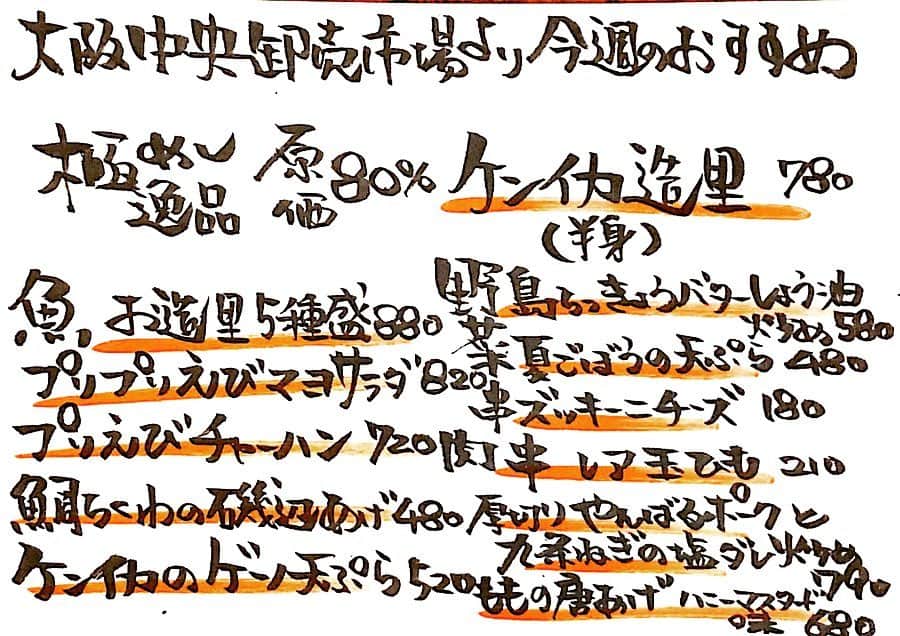 大阪中央卸売市場より今週のおすすめ
極めし逸品 原価80%
ケンイカ造里 780
(半身)
魚 お造里5種盛880
プリプリえびマヨサラダ820
プリえびチャーハン720
鯛ちくわの磯辺あげ480
ケンイカのゲソ天ぷら520
野菜 島らっきょうバターしょう油炒め580
夏ごぼうの天ぷら480
串ズッキーニチーズ 180
関 串 レア玉ひも 210
厚切りやんばるポークと
九条ねぎの塩ダレ炒め 790
ももの唐あげ ハニーマスタード味 680